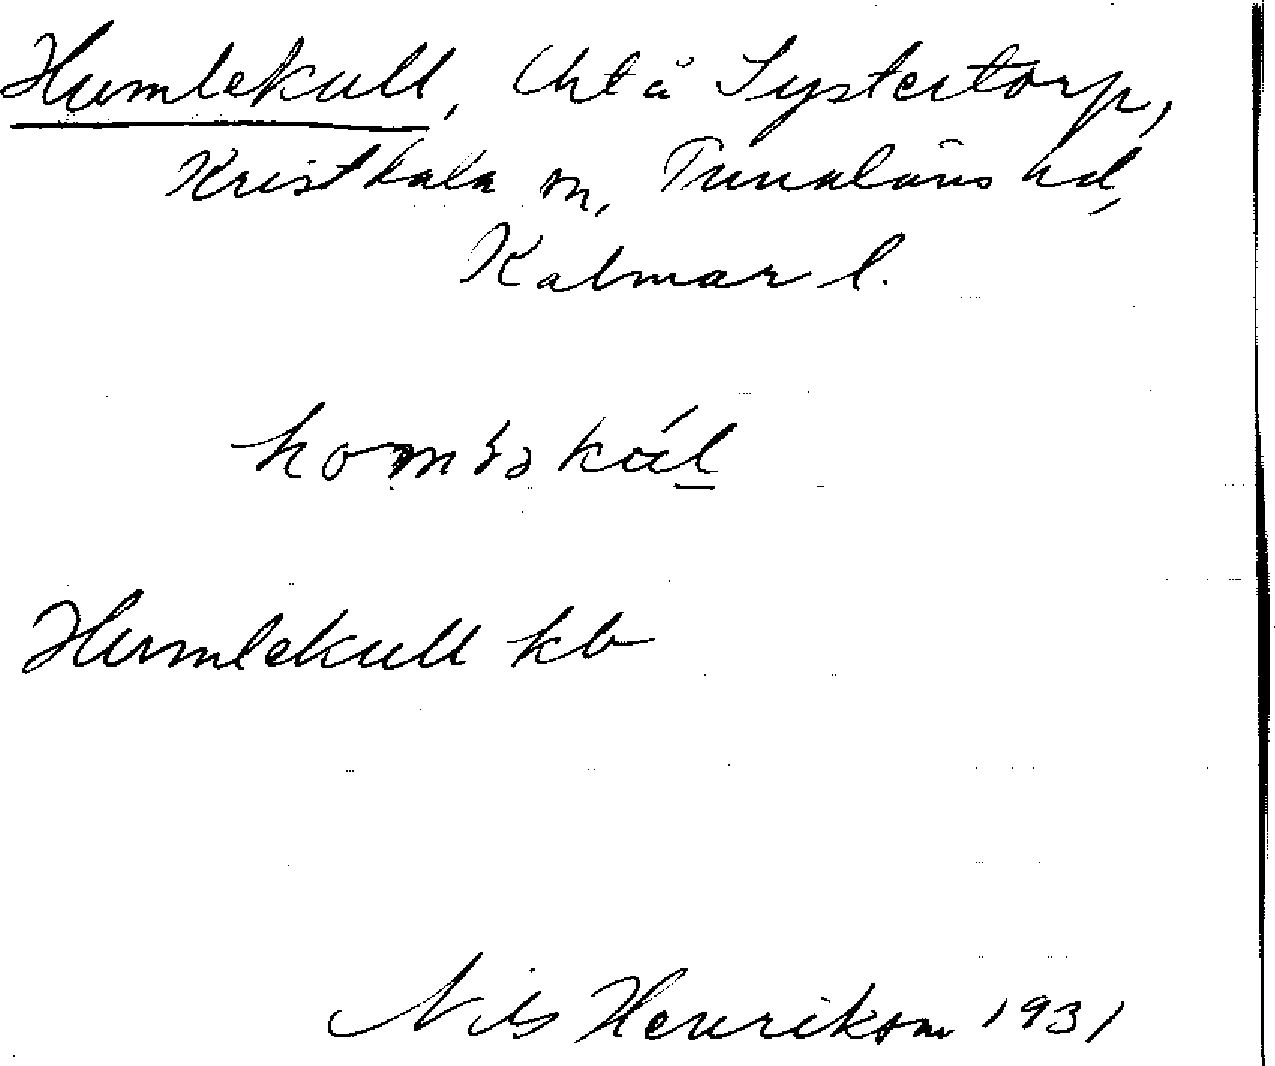 Humlekull, Uht å Systertorp,
Kristdala sn, Tunaläns hd,
Kalmar l.
Humlekull kb
Nils Henrikson 1931